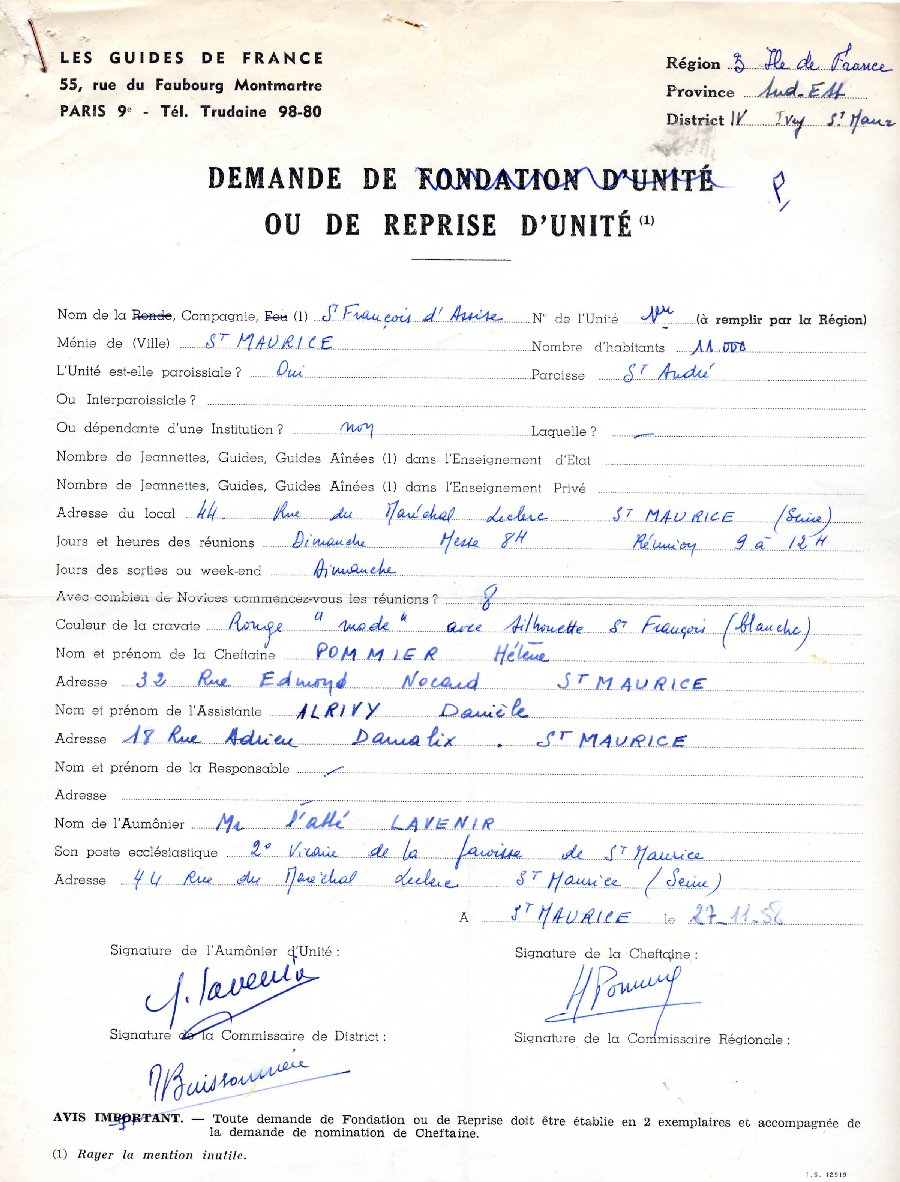 LES GUIDES DE FRANCE
55, rue du Faubourg Montmartre
PARIS 9e - Tél. Trudaine 98-80
Région 3 Ile de France
Province Sud-Est
District IV Ivry St Maur
DEMANDE DE FONDATION D'UNITÉ
OU DE REPRISE D'UNITÉ (1)
Nom de la Ronde, Compagnie, Feu (1) St François d'Assise N° de l'Unité 1ère (à remplir par la Région)
Ménie de (Ville) ST MAURICE Nombre d'habitants 11.000
L'Unité est-elle paroissiale ? Oui Paroisse St André
Ou Interparoissiale ?
Ou dépendante d'une Institution ? non Laquelle ? —
Nombre de Jeannettes, Guides, Guides Aînées (1) dans l'Enseignement d'Etat
Nombre de Jeannettes, Guides, Guides Aînées (1) dans l'Enseignement Privé
Adresse du local 44. Rue du Maréchal Leclerc ST MAURICE (Seine)
Jours et heures des réunions Dimanche Messe 8H Réunion 9 à 12H
Jours des sorties ou week-end Dimanche
Avec combien de Novices commencez-vous les réunions ? 8
Couleur de la cravate Rouge "mode" avec silhouette St François (blanche)
Nom et prénom de la Cheftaine POMMIER Hélène
Adresse 32 Rue Edmond Nocard ST MAURICE
Nom et prénom de l'Assistante ALRIVY Danièle
Adresse 18 Rue Adrien Damalix . ST MAURICE
Nom et prénom de la Responsable —
Adresse
Nom de l'Aumônier Mr l'abbé LAVENIR
Son poste ecclésiastique 2° Vicaire de la paroisse de St Maurice
Adresse 44 Rue du Maréchal Leclerc St Maurice (Seine)
A ST MAURICE le 27-11-58
Signature de l'Aumônier d'Unité : Signature de la Cheftaine :
J. Lavenir H Pommier
Signature de la Commissaire de District : Signature de la Commissaire Régionale :
Buissonnière
AVIS IMPORTANT. — Toute demande de Fondation ou de Reprise doit être établie en 2 exemplaires et accompagnée de
la demande de nomination de Cheftaine.
(1) Rayer la mention inutile.